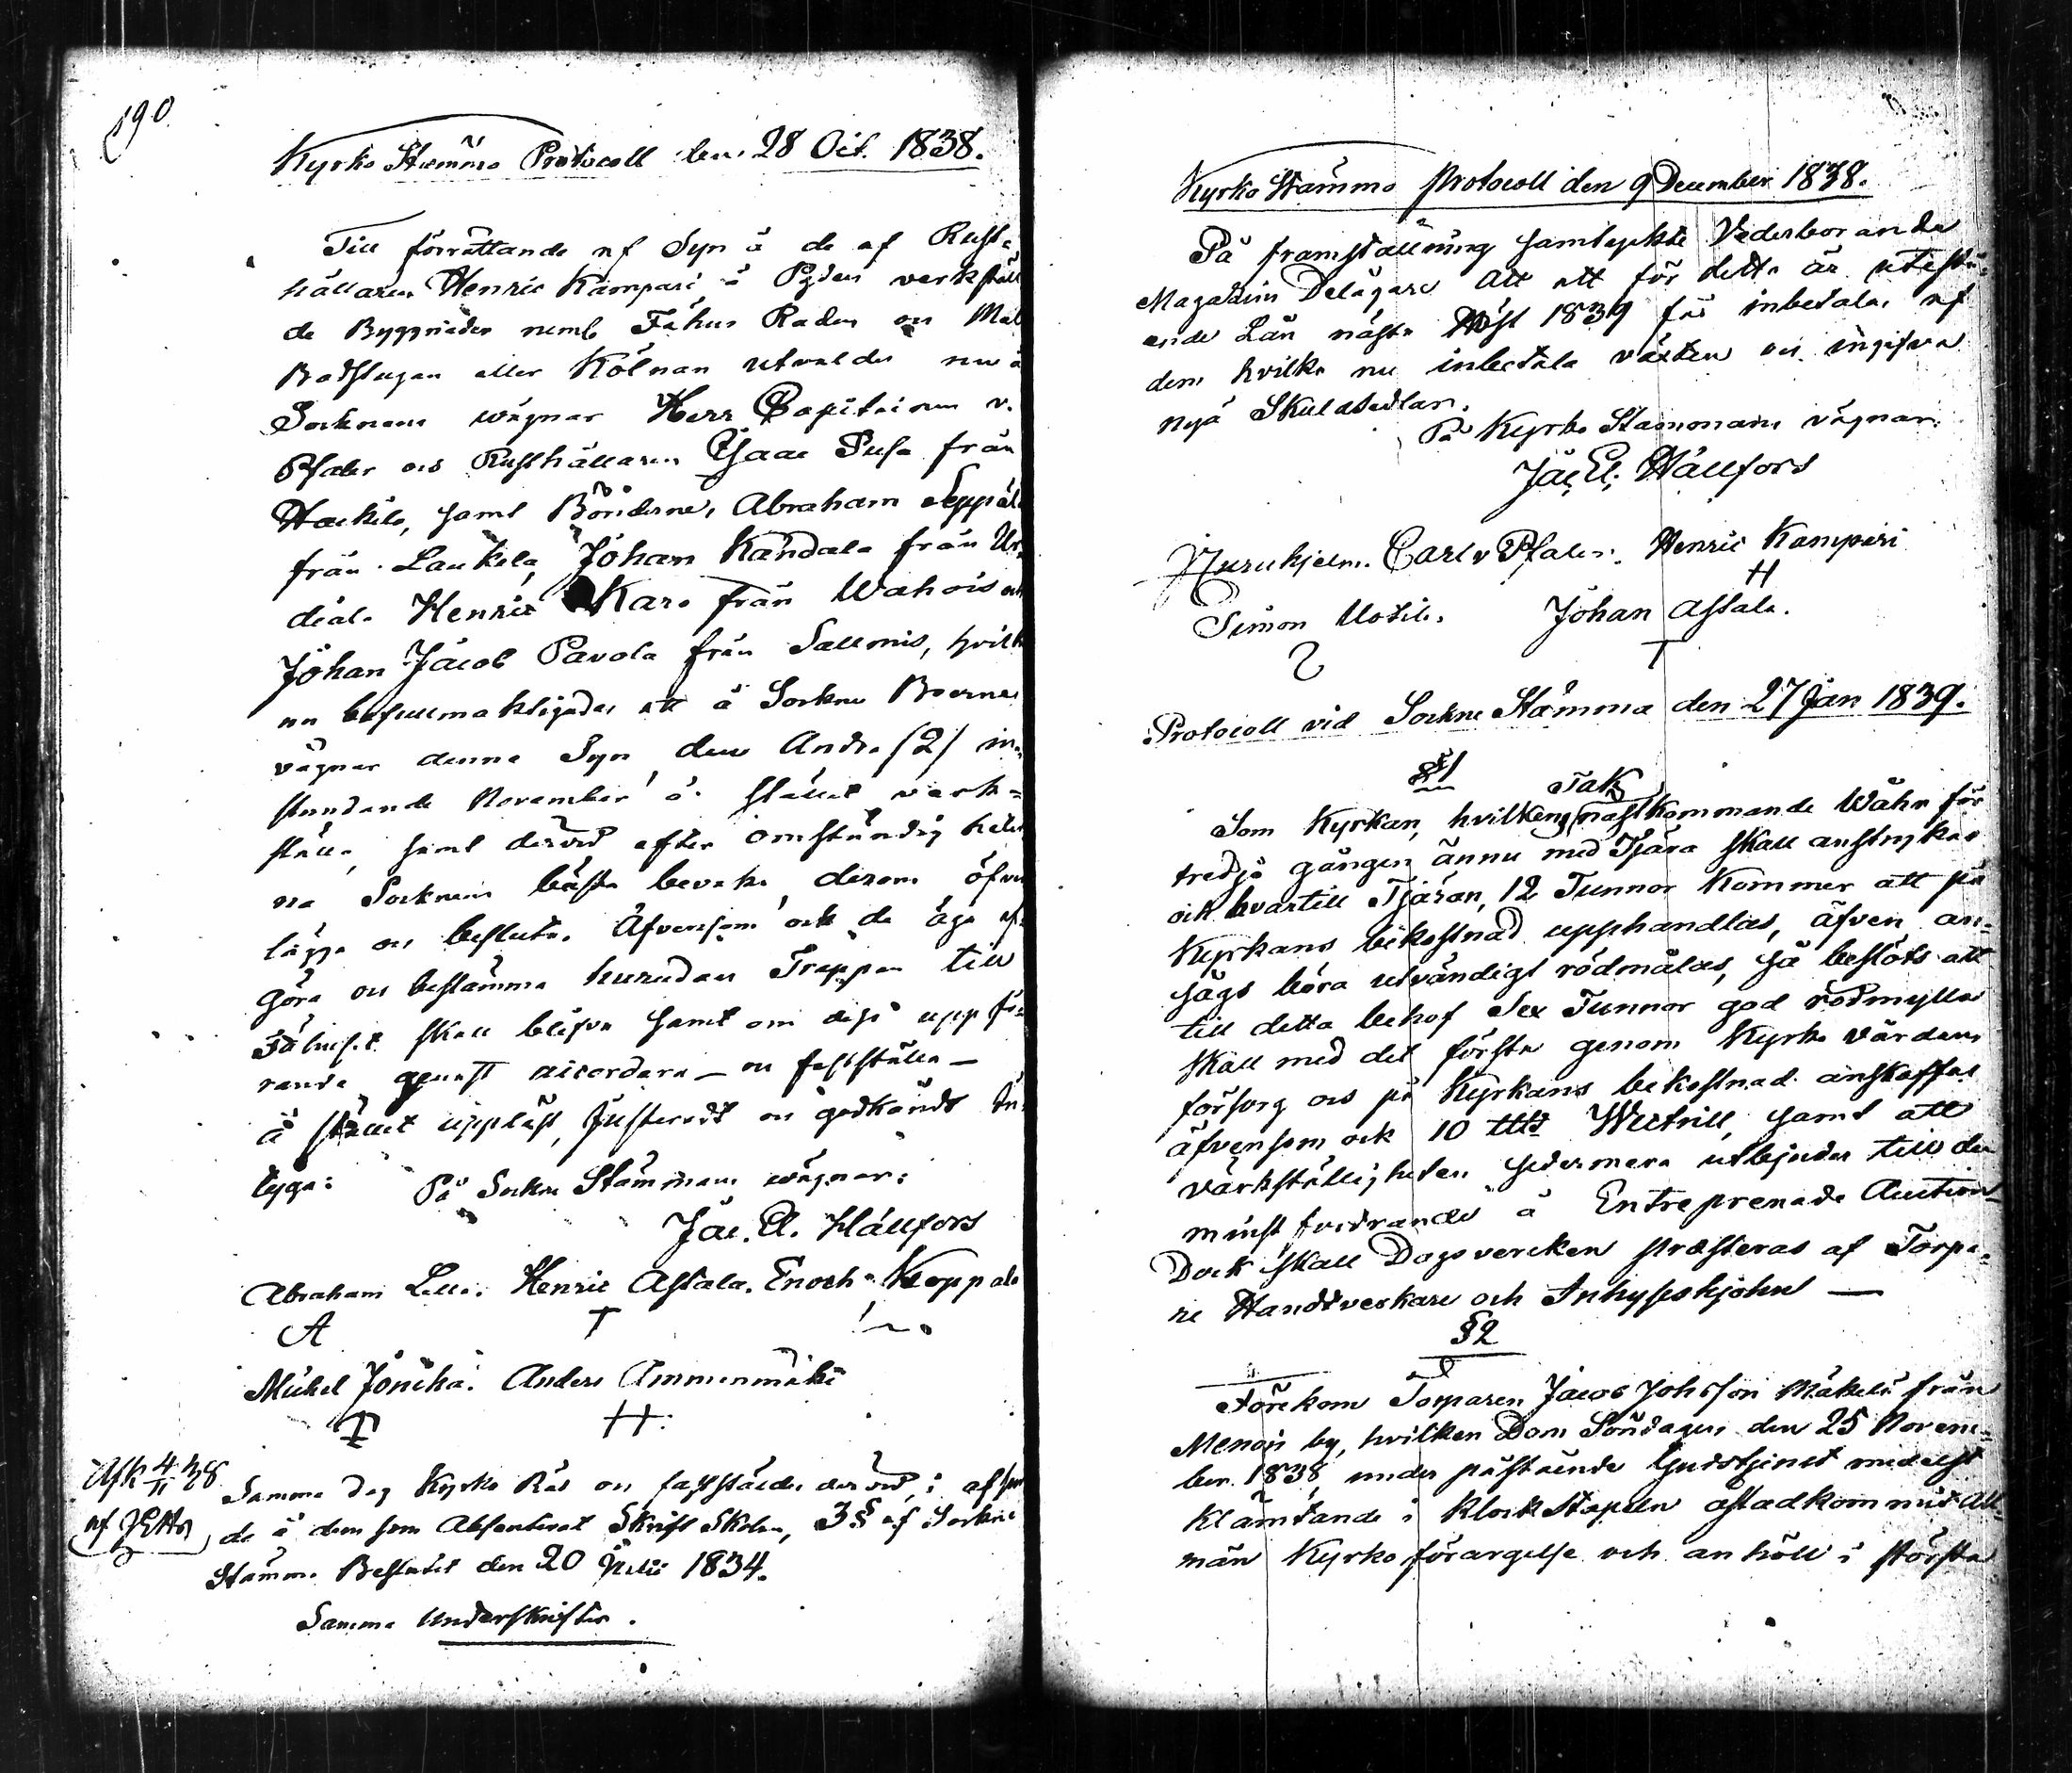 190
Kyrko Stämmo Protocoll den 28 Oct. 1838.
Till förrättande af Syn å de af Rust-
hållaren Henric Kampari å verkstäl
de Byggnader neml Fähus Raden och Mal
Badstugan eller Kölnan utvaldes nu å
Socknens wägnar Herr Capitainen v.
Pfaler och Rusthållaren Isaac Pusa från
Haukila, samt Bönderne, Abraham Seppäl
från Laukola, Johan Kandala från
Henric Karo från Wahois och
Johan Jacob Pavola från Sallmis, hvilk
nu befullmäktigades att å Sockne Boernes
vägnar denna Syn den Andra (2) in-
stundande November å stället verk-
ställa, samt dervid efter omständighete
na Socknens bästa bevaka derom öfver
lägga och besluta. Äfvensom ock de äga af
göra och bestämma hurudan Trappan till
Fähuset skall blifva samt om dess uppfö-
rande genast accordera - och fastställa -
å stället uppläst, Justeradt och godkändt be-
tyga: På Sockne Stämmans wägnar:
Jac. El. Hällfors
Abraham Lille. Henric Astala. Enoch Noppala
A T
Mickel Jonicka. Anders Ammenmäki
H
Afk 4/11 38
af JEHs
Samma dag Kyrko Råd och fastställdes dervid, i afseen
de å dem som Absenterat Skrift Skolan, 3 § af Sockne
Stämmo Beslutet den 20 Julii 1834.
Samma Underskrifter.
Kyrko Stämmo Protocoll den 9 December 1838.
På framställning samtyckte Vederbörande
Magazins Delägare att ett för detta år utestå-
ende Lån nästa Höst 1839 får inbetalas af
dem hvilka nu inbetala växten och ingifva
nya Skuldsedlar.
På Kyrko Stämmans vägnar:
Jac. El. Hällfors
Furuhjelm. Carl v Pfaler. Henric Kampari
H
Simon Uotila. Johan Astala.
T
Protocoll vid Sockne Stämma den 27 Jan 1839.
§1
Tak
Som Kyrkan, hvilkens nästkommande Wåhr för
tredje gången ännu med Tjära skall anstrykas
och hvartill Tjäran, 12 Tunnor kommer att på
Kyrkans bekostnad upphandlas, äfven an-
sågs böra utvändigt rödmålas, så beslöts att
till detta behof Sex Tunnor god rödmylla
skall med det första genom Kyrko Värdens
försorg och på Kyrkans bekostnad anskaffas
äfvensom ock 10 Wictrill, samt att
värkställigheten sedermera utbjudes till den
minst fordrande å Entreprenade Auction
Dock skall Dagsvercken præsteras af Torpa-
re Handtverkare och Inhyseshjohn -
§2
Förekom Torparen Jacob Johsson Mäkelä från
Menois by, hvilken Dom Söndagen den 25 Novem-
ber 1838, under påstående Gudstjenst medelst
Klämtande i Klock Stapeln åstadkommit All-
män Kyrko förargelse och anhöll i största